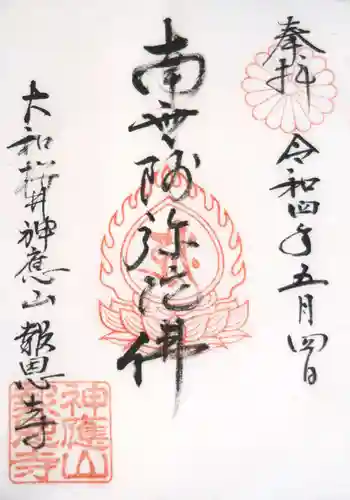 奉拝
令和四年五月四日
南無阿弥陀佛
大和桜井神應山報恩寺
神應山
報恩寺